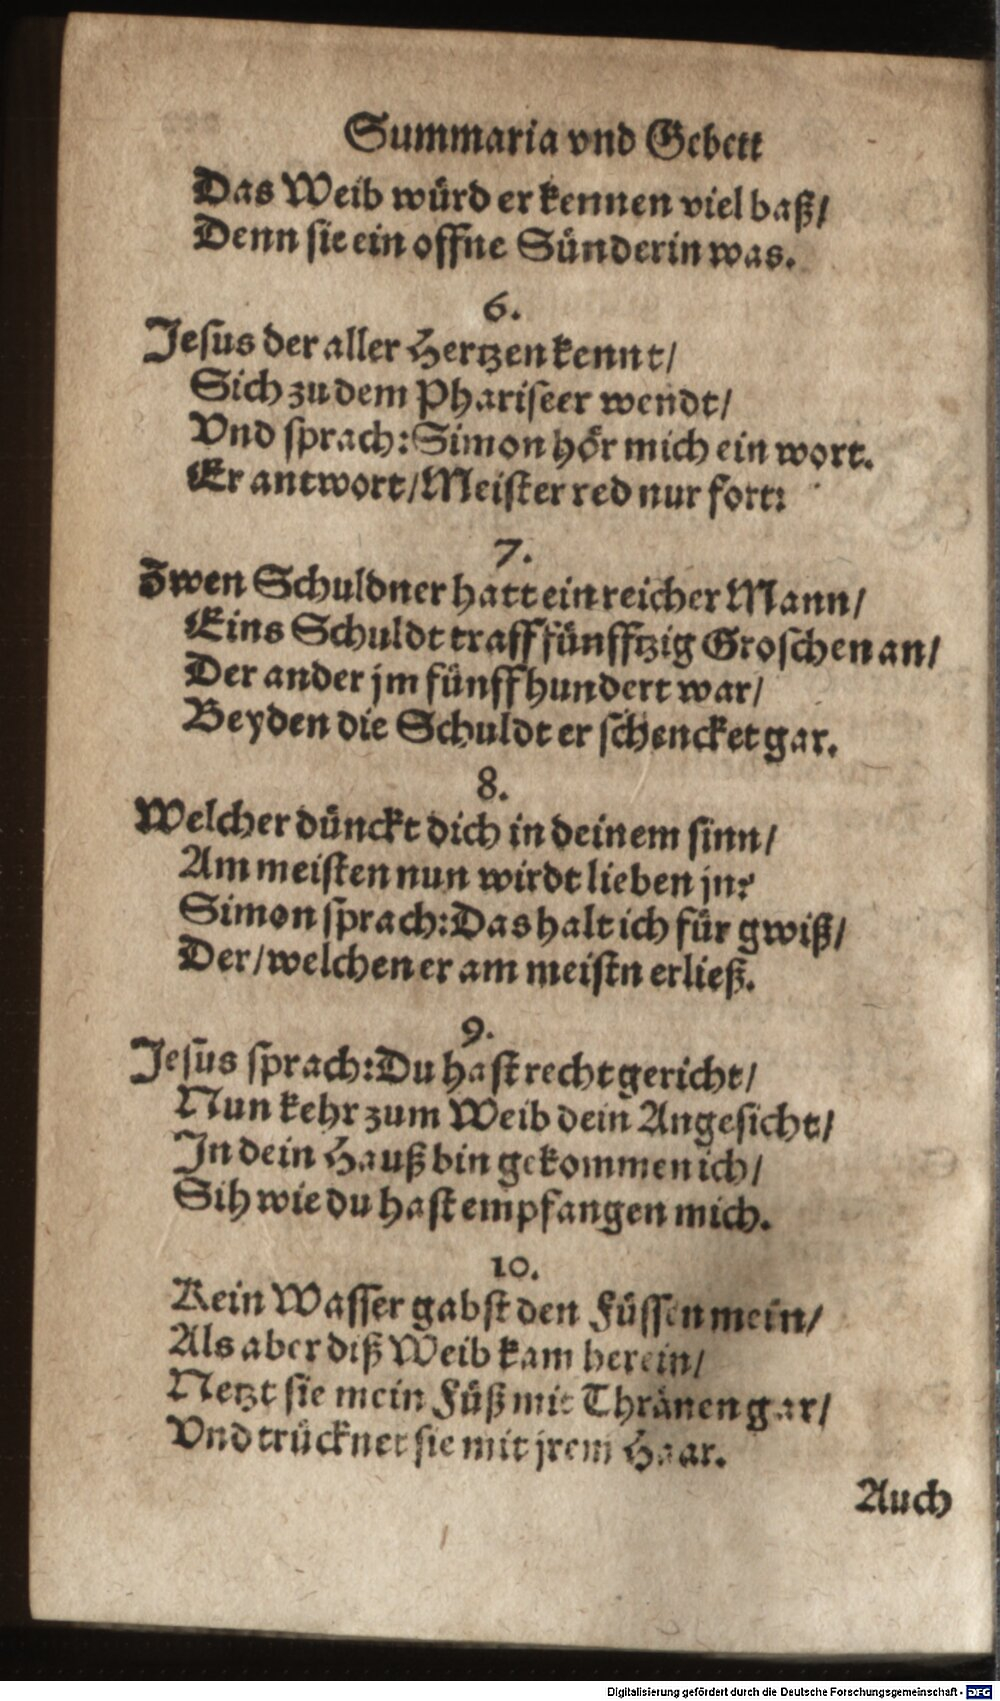 Summaria vnd Gebett
Das Weib würd er kennen viel baß/
Denn sie ein offne Sünderin was.
6.
Jesus der aller Hertzen kennt/
Sich zu dem Phariseer wendt/
Vnd sprach: Simon hör mich ein wort.
Er antwort/ Meister red nur fort:
7.
Zwen Schuldner hatt ein reicher Mann/
Eins Schuldt traff fünfftzig Groschen an/
Der ander jm fünffhundert war/
Beyden die Schuldt er schencket gar.
8.
Welcher dünckt dich in deinem sinn/
Am meisten nun wirdt lieben jn?
Simon sprach: Das halt ich für gwiß/
Der/ welchen er am meistn erließ.
9.
Jesus sprach: Du hast recht gericht/
Nun kehr zum Weib dein Angesicht/
In dein Hauß bin gekommen ich/
Sih wie du hast empfangen mich.
10.
Kein Wasser gabst den Füssen mein/
Als aber diß Weib kam herein/
Netzt sie mein Füß mit Thränen gar/
Vnd trückner sie mit jrem Haar.
Auch
Digitalisierung gefördert durch die Deutsche Forschungsgemeinschaft - DFG